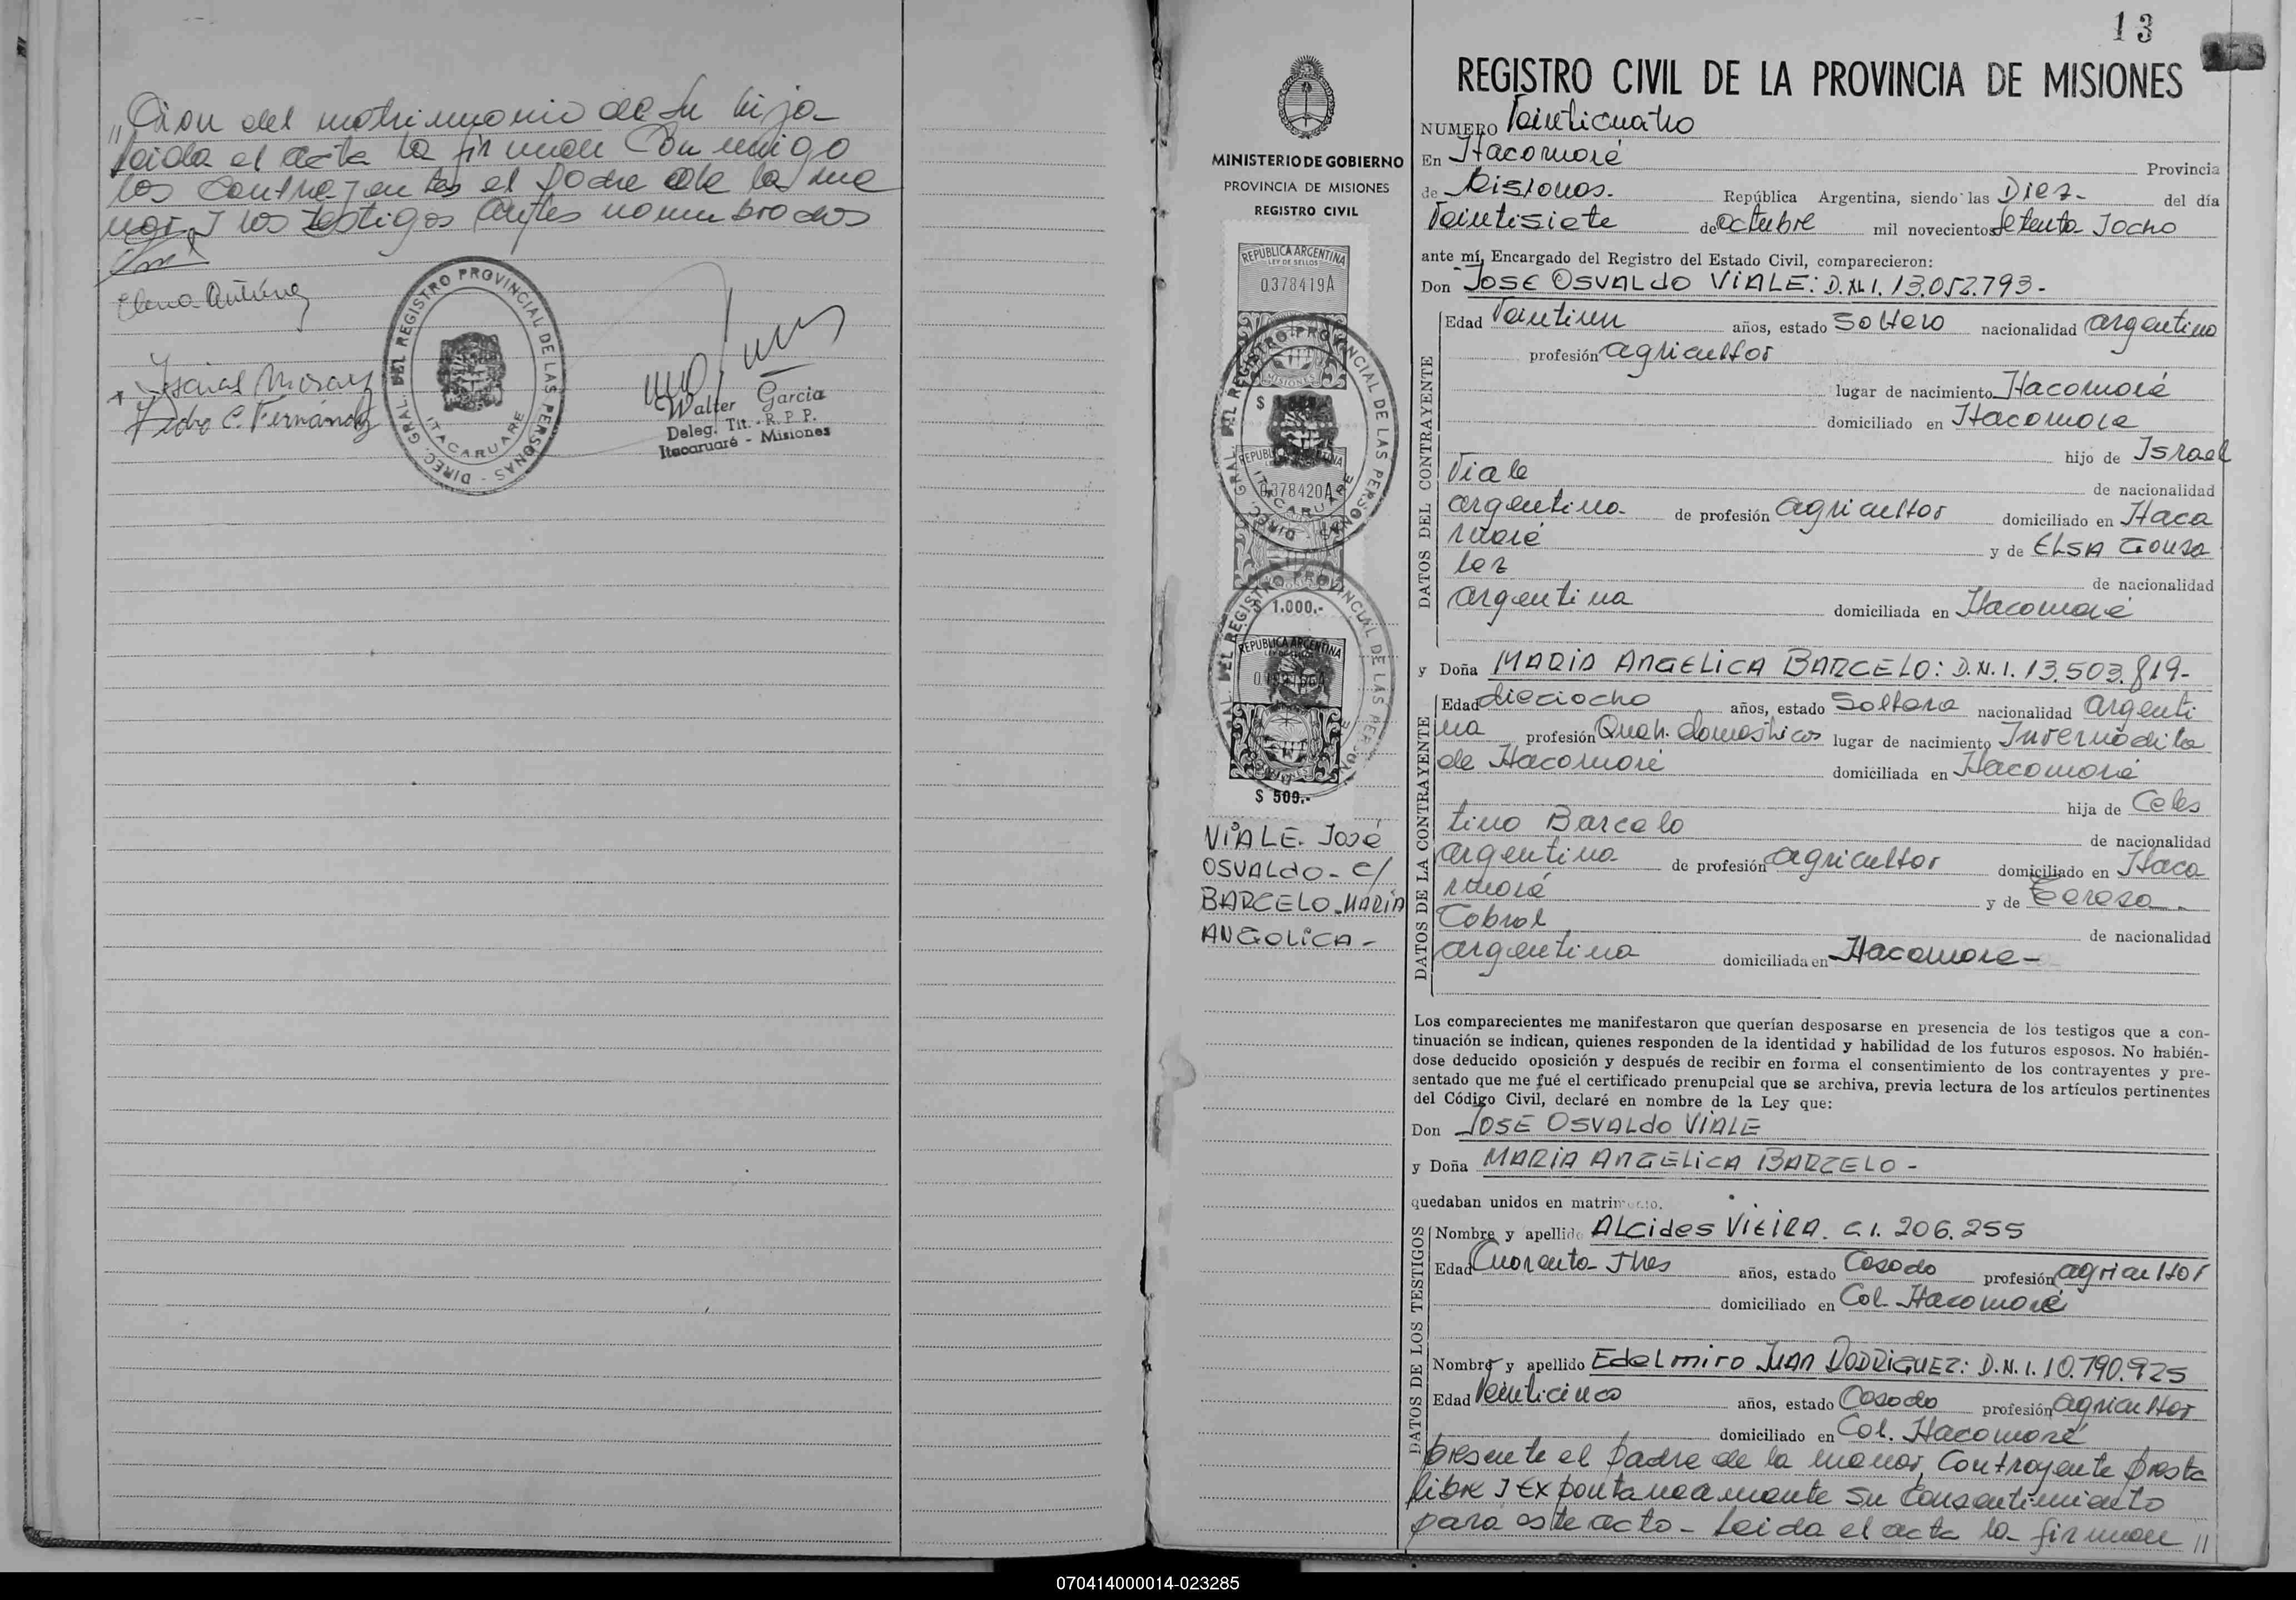 "Cion del matrimonio de su hija
Leida el acta la firman Conmigo
los Contrayentes el Padre de la me
nor y los testigos Antes nombrados
Elena
Pedro C. Fernández
DIREC. GRAL. DEL REGISTRO PROVINCIAL DE LAS PERSONAS
ITACARUARE
Walter Garcia
Deleg. Tit. - R. P. P.
Itacaruaré - Misiones
MINISTERIO DE GOBIERNO
PROVINCIA DE MISIONES
REGISTRO CIVIL
REPUBLICA ARGENTINA
LEY DE SELLOS
0378419A
DIREC. GRAL. DEL REGISTRO PROVINCIAL DE LAS PERSONAS
ITACARUARE
0378420A
$ 1.000.-
REPUBLICA ARGENTINA
$ 500.-
VIALE. José
OSVALdO - C/
BARCELO. MARIA
ANGOLICA -
13
REGISTRO CIVIL DE LA PROVINCIA DE MISIONES
NUMERO Veinticuatro
En Itacaruaré Provincia
de Misiones. República Argentina, siendo las Diez- del día
Veintisiete de octubre mil novecientos Setenta Yocho
ante mí, Encargado del Registro del Estado Civil, comparecieron:
Don JOSE OSVALdO VIALE: D.N.I. 13.052.793.-
DATOS DEL CONTRAYENTE
Edad Veintiun años, estado Soltero nacionalidad argentino
profesión agricultor
lugar de nacimiento Itacaruaré
domiciliado en Itacaruare
hijo de Israel
Viale de nacionalidad
argentino de profesión agricultor domiciliado en Itaca
ruaré y de ELSA Gonsa
lez de nacionalidad
argentina domiciliada en Itacaruaré
y Doña MARIA ANGELICA BARCELO: D.N.I. 13.503.819-
DATOS DE LA CONTRAYENTE
Edad dieciocho años, estado Soltera nacionalidad argenti
na profesión Queh. domesticos lugar de nacimiento Invernadita
de Itacaruaré domiciliada en Itacaruaré
hija de Celes
tino Barcelo de nacionalidad
argentino de profesión agricultor domiciliado en Itaca
ruaré y de Teresa
Cabral de nacionalidad
argentina domiciliada en Itacaruare-
Los comparecientes me manifestaron que querían desposarse en presencia de los testigos que a con-
tinuación se indican, quienes responden de la identidad y habilidad de los futuros esposos. No habién-
dose deducido oposición y después de recibir en forma el consentimiento de los contrayentes y pre-
sentado que me fué el certificado prenupcial que se archiva, previa lectura de los artículos pertinentes
del Código Civil, declaré en nombre de la Ley que:
Don JOSE OSVALdO VIALE
y Doña MARIA ANGELICA BARCELO -
quedaban unidos en matrimonio.
DATOS DE LOS TESTIGOS
Nombre y apellido ALCides VIEIRA. C.I. 206.255
Edad Cuarenta Y tres años, estado Casado profesión agricultor
domiciliado en Col. Itacaruaré
Nombre y apellido Edelmiro JUAN RODRIGUEZ: D.N.I. 10.790.925
Edad Veinticinco años, estado Casado profesión agricultor
domiciliado en Col. Itacaruaré
Presente el padre de la menor, Contrayente Presta
libre y Expontaneamente su Consentimiento
para este acto - Leida el acta la firman "
070414000014-023285